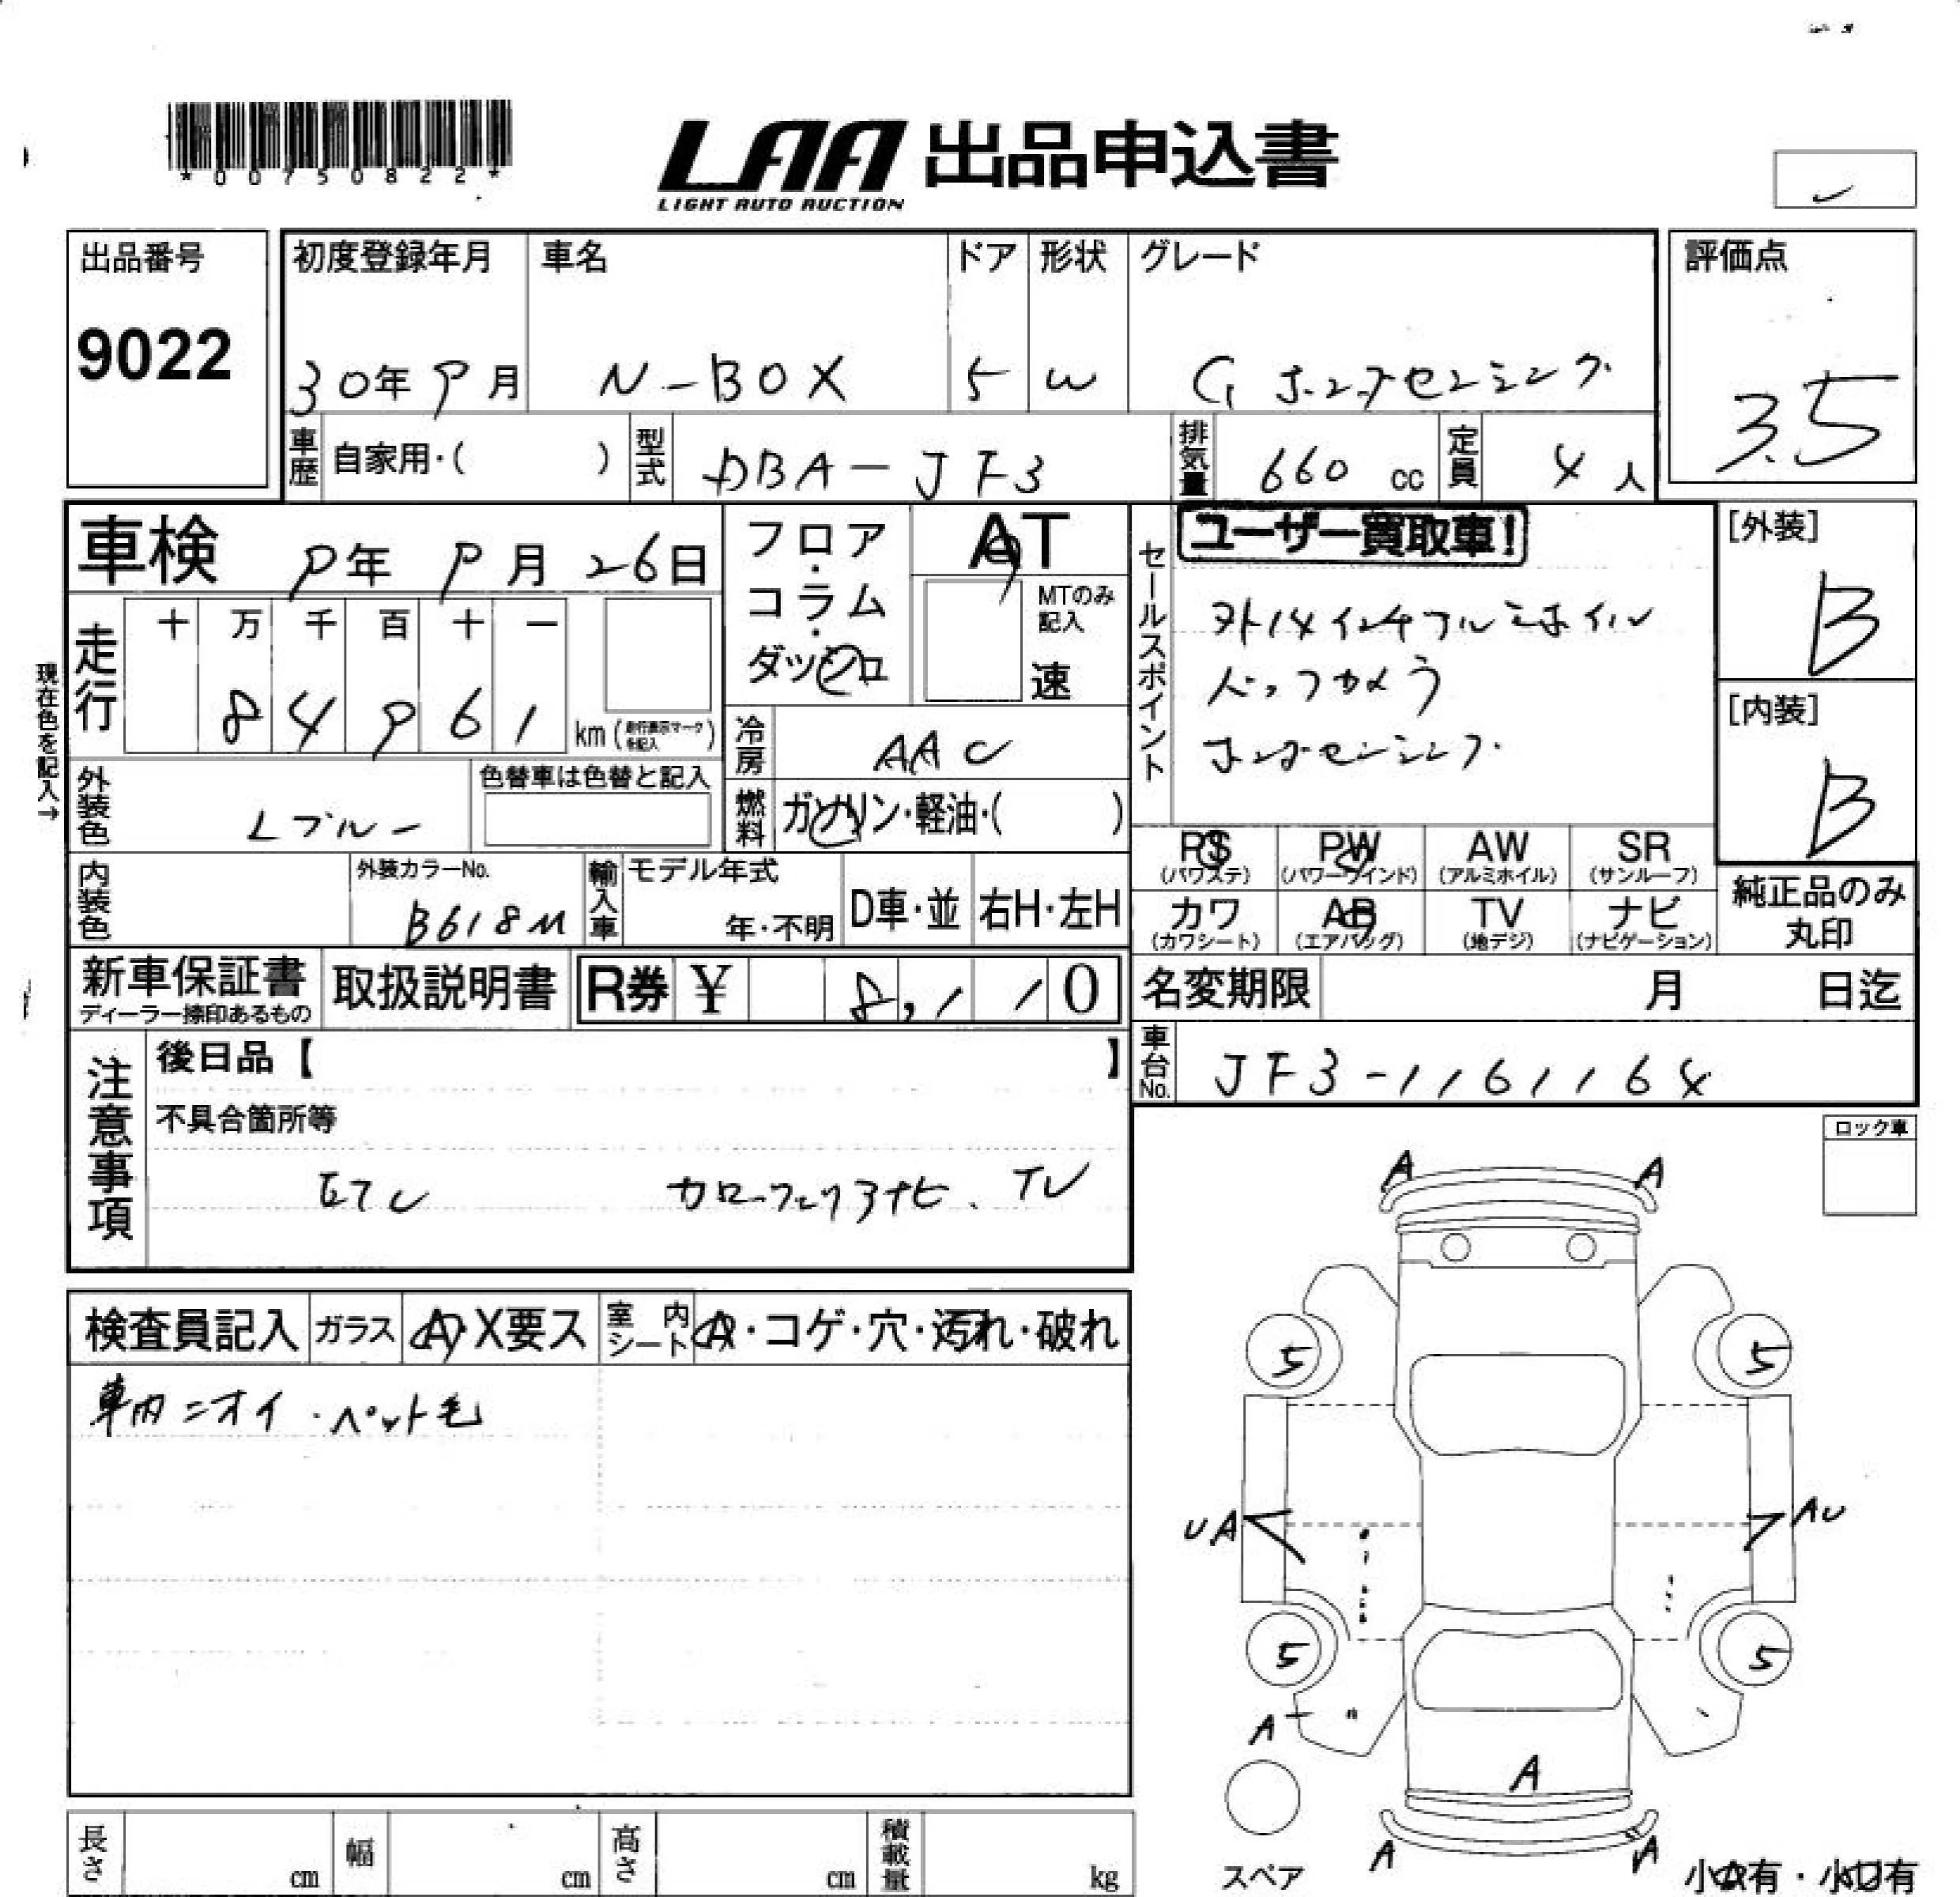 *00750822*
LAA 出品申込書
LIGHT AUTO AUCTION
出品番号
9022
初度登録年月 車名 ドア 形状 グレード
30年9月 N-BOX 5 W G ホンダセンシング
評価点
3.5
車歴 自家用・( ) 型式 DBA-JF3 排気量 660 cc 定員 4人
車検 9年9月26日
フロア・コラム・ダッシュ
AT
MTのみ記入
速
セールスポイント
ユーザー買取車!
外14インチアルミホイル
バックカメラ
ホンダセンシング
[外装]
B
[内装]
B
現在色を記入→
走行 十 万 千 百 十 一
84961 km (走行表示マークを記入)
冷房 AAC
外装色 Lブルー 色替車は色替と記入
燃料 ガソリン・軽油・( )
内装色 外装カラーNo. B618M
輸入車 モデル年式 年・不明 D車・並 右H・左H
PS (パワステ) PW (パワーウインド) AW (アルミホイル) SR (サンルーフ)
カワ (カワシート) AB (エアバッグ) TV (地デジ) ナビ (ナビゲーション)
純正品のみ丸印
新車保証書 ディーラー捺印あるもの 取扱説明書 R券 ¥ 8,110
名変期限 月 日迄
車台No. JF3-1161164
注意事項
後日品【 】
不具合箇所等
ETC カロッツェリアナビ. TV
ロック車
検査員記入 ガラス A・X要ス 室内シート A・コゲ・穴・汚れ・破れ
車内ニオイ・ペット毛
A A
5 5
UA AU
5 5
A
A
A A
スペア
小A有・小U有
長さ cm 幅 cm 高さ cm 積載量 kg